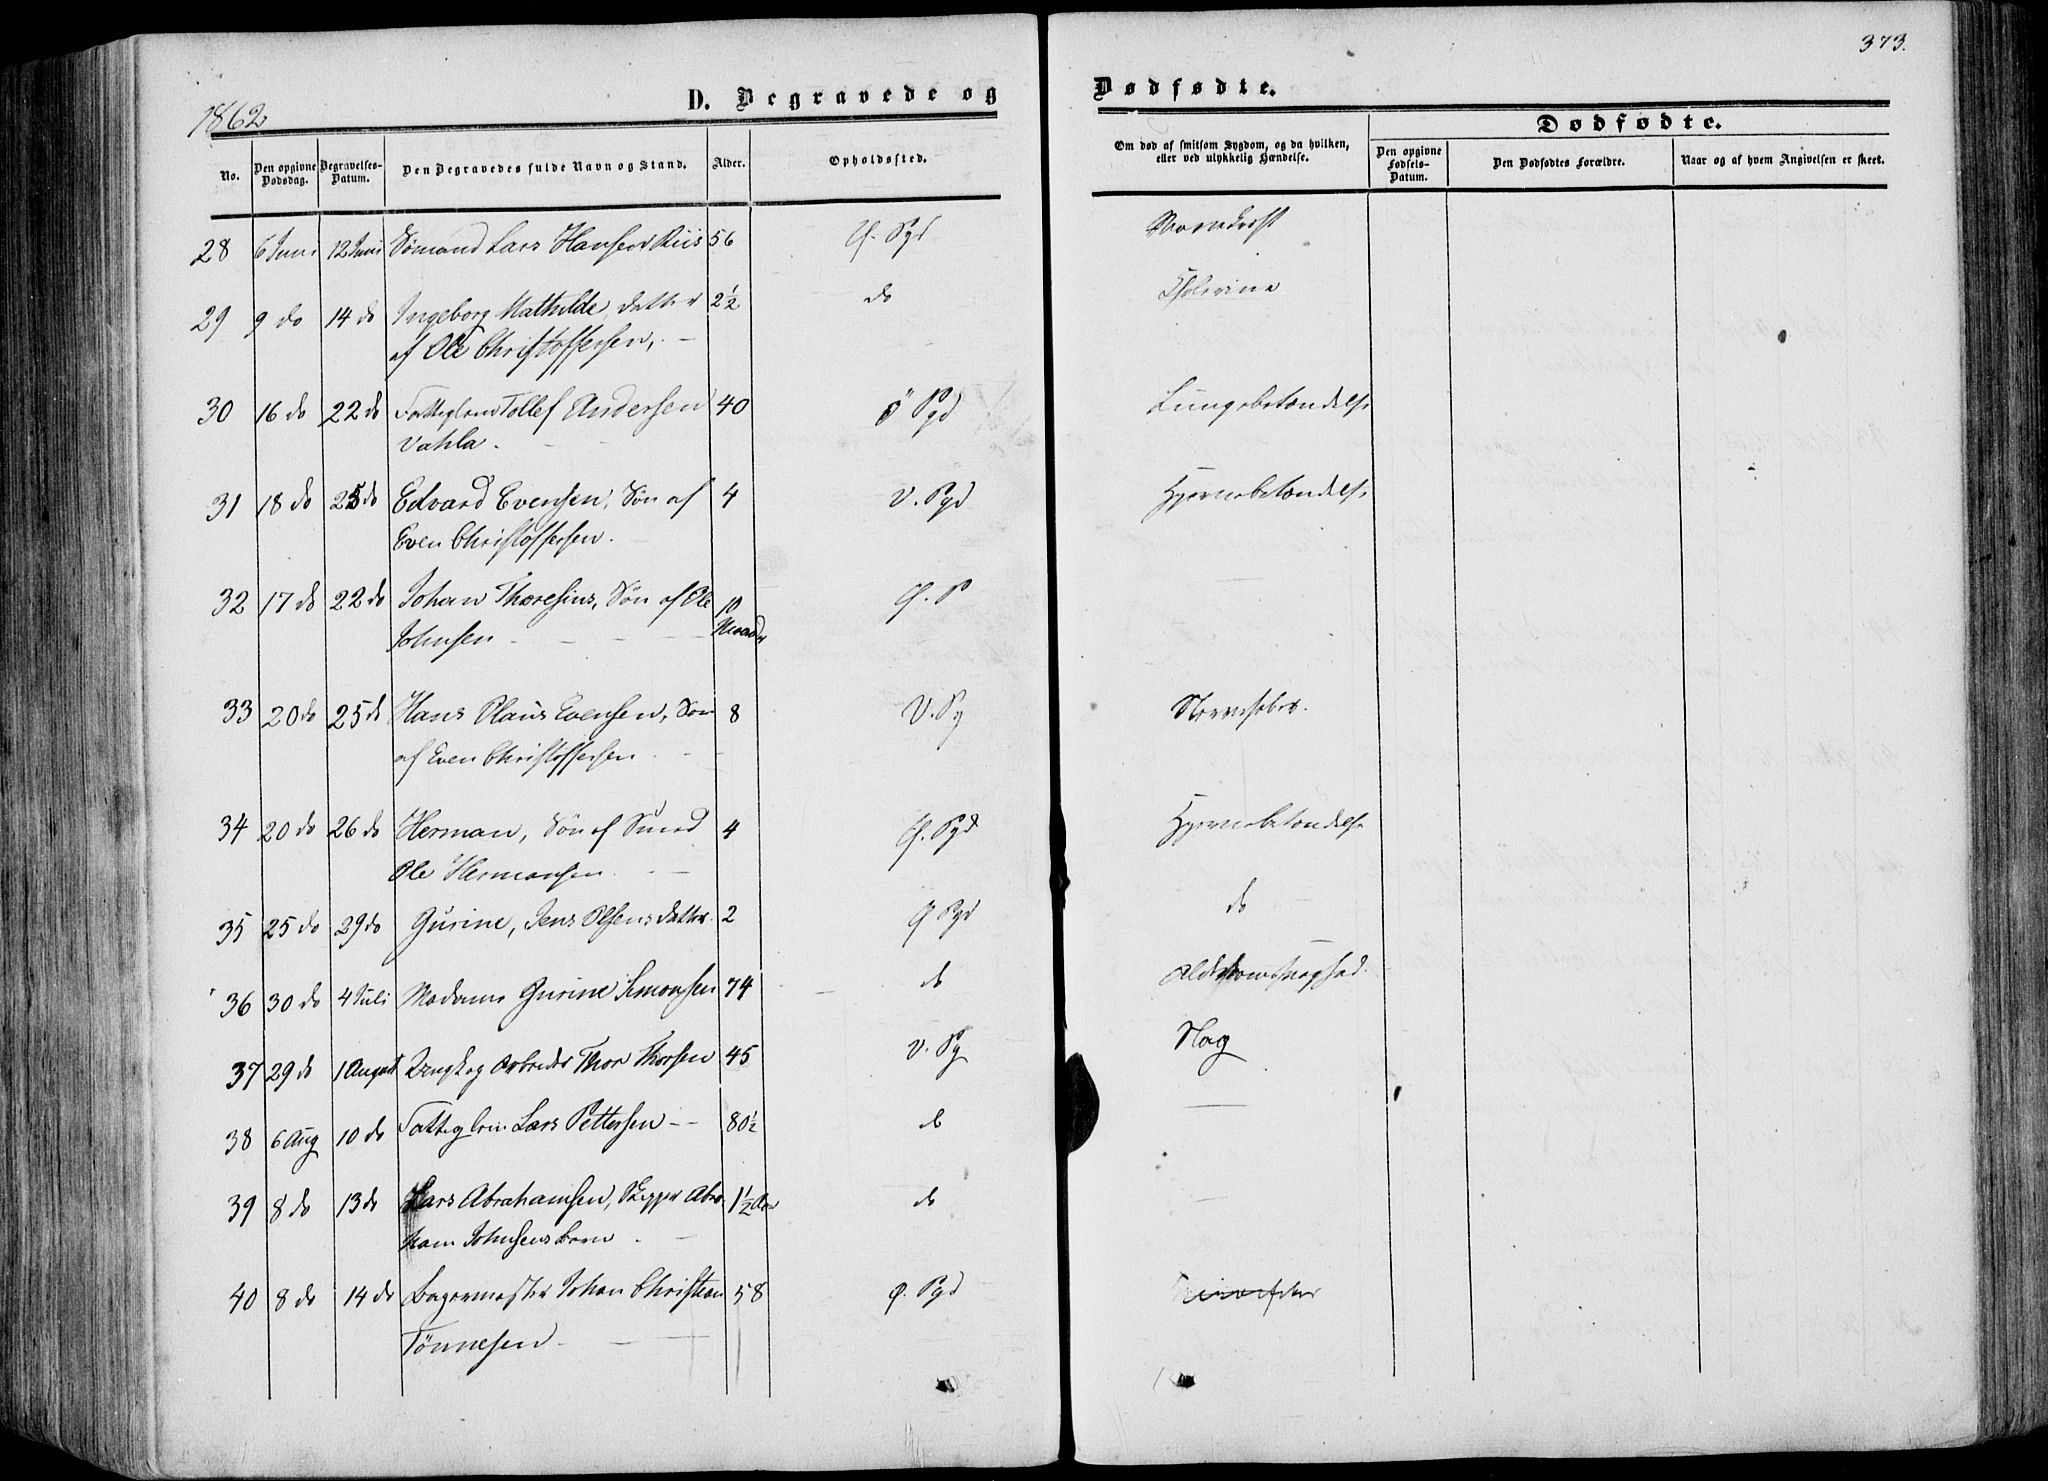 1862
D. Begravede og
Dødfødte.
373.
No.
Den opgivne Dødsdag.
Begravelses-Datum.
Den Begravedes fulde Navn og Stand.
Alder.
Opholdssted.
Om død af smitsom Sygdom, og da hvilken, eller ved ulykkelig Hændelse.
Dødfødte.
Den opgivne Fødsels-Datum.
Den Dødfødtes Forældre.
Naar og af hvem Angivelsen er skeet.
28 6 Juni 12 Juni Sømand Lars Hansen Riis 56 Pgd
29 9 do 14 do Ingeborg Mathilde, datter 2½ do Cholerine
af Ole Christoffersen,
30 16 do 22 do Tollef Andersen 40 Ø Pgd Lungebetændelse
Vahla.
31 18 do 25 do Edvard Evensen, Søn af 4 V. Pgd Hjernebetændelse
Even Christoffersen.
32 17 do 22 do Johan Thoresius, Søn af Ole 10 P
Johnsen Maaneder
33 20 do 25 do Hans Claus Evensen, Søn 8 V. Pg Nervefeber.
af Even Christoffersen
34 20 do 26 do Herman, Søn af Smed 4 Pgd Hjernebetændelse
Ole Hermansen
35 25 do 29 do Gurine, Jens Olsens datter. 2 Pgd do
36 30 do 4 Juli Madame Gurine Simonsen 74 do Alderdomssvaghed.
37 29 do 1 August Arbeider Thor Thorsen 45 V. Pg Slag
38 6 Aug 10 do Lars Pettersen 80½ do
39 8 do 13 do Lars Abrahamsen, Skipper Abra- 1½ Aar do
ham Johnsens Barn
40 8 do 14 do Bagermester Johan Christian 58 Ø. Pgd
Tønnesen